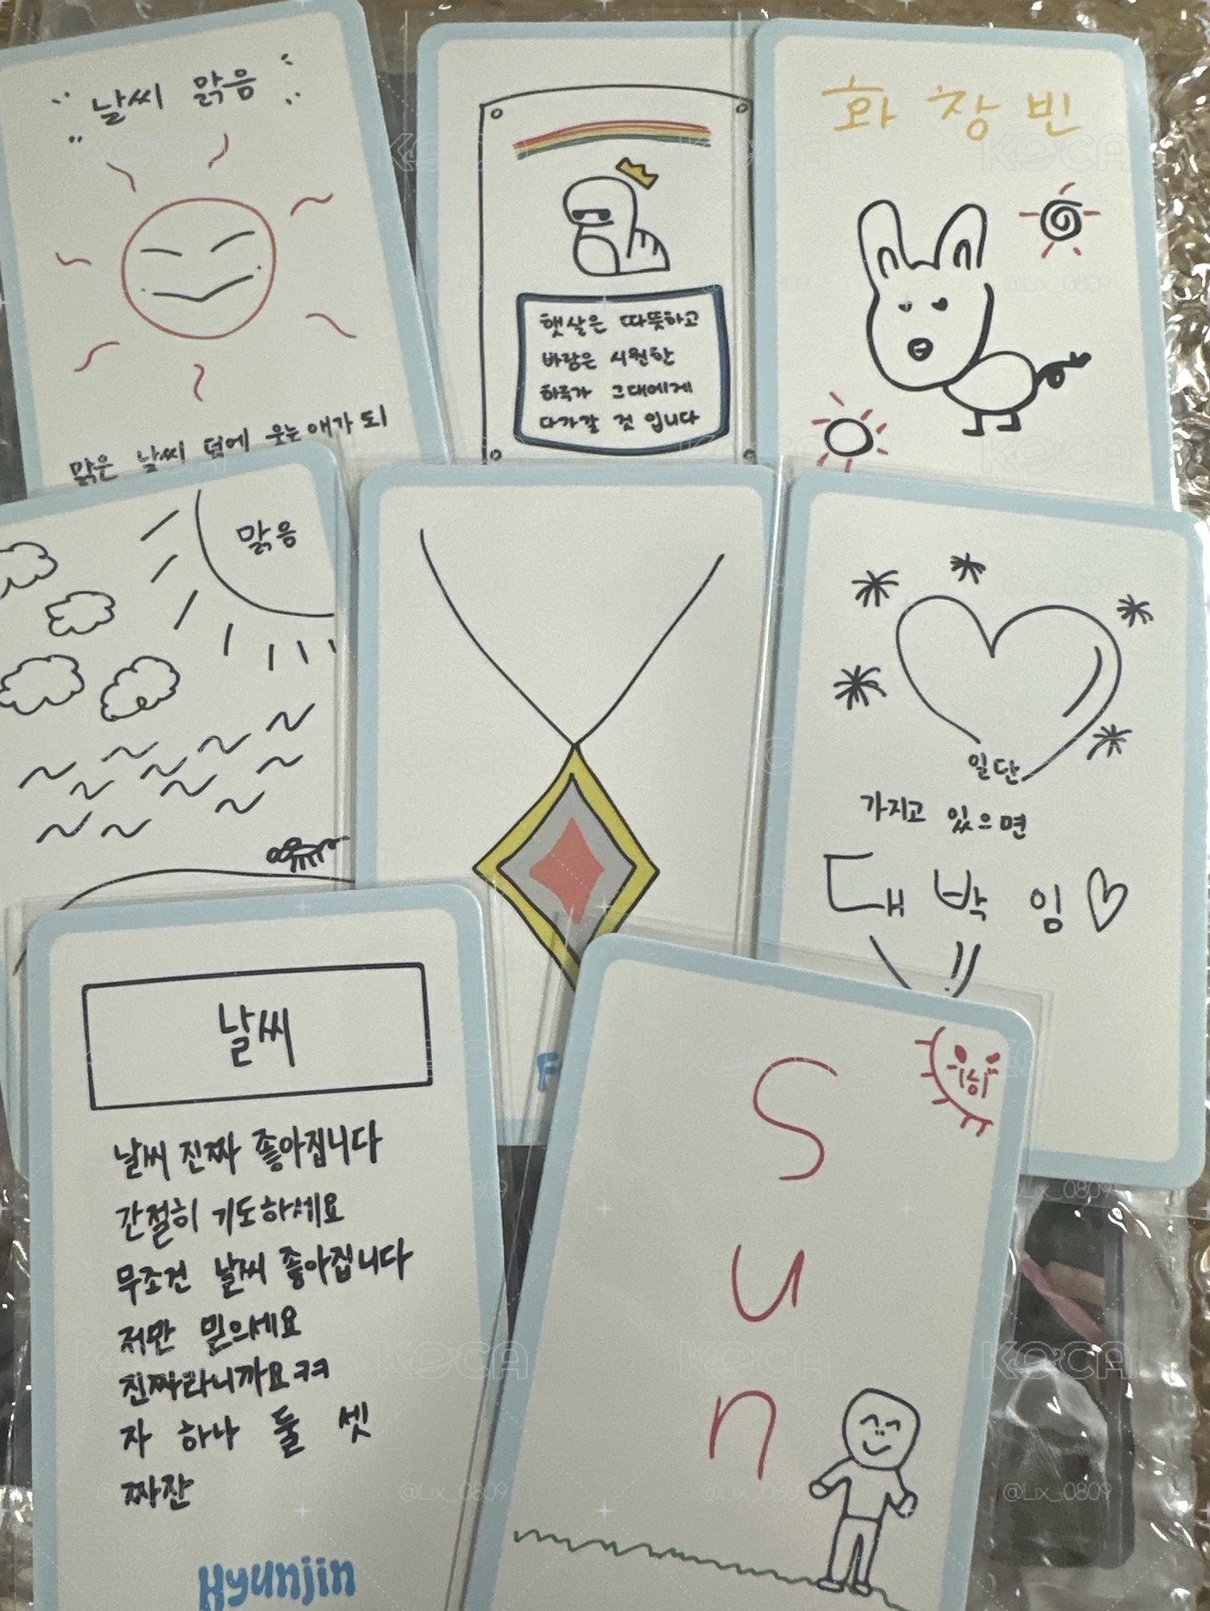 날씨 맑음
맑은 날씨 덤에 웃는 애가 되
햇살은 따뜻하고
바람은 시원한
하루가 그대에게
다가갈 것 입니다
화 창 빈
맑음
일단
가지고 있으면
대박임♡
날씨
날씨 진짜 좋아집니다
간절히 기도하세요
무조건 날씨 좋아집니다
저만 믿으세요
진짜라니까요ㅋㅋ
자 하나 둘 셋
짜잔
Hyunjin
F
Sun
KOCA
@Lix_0809